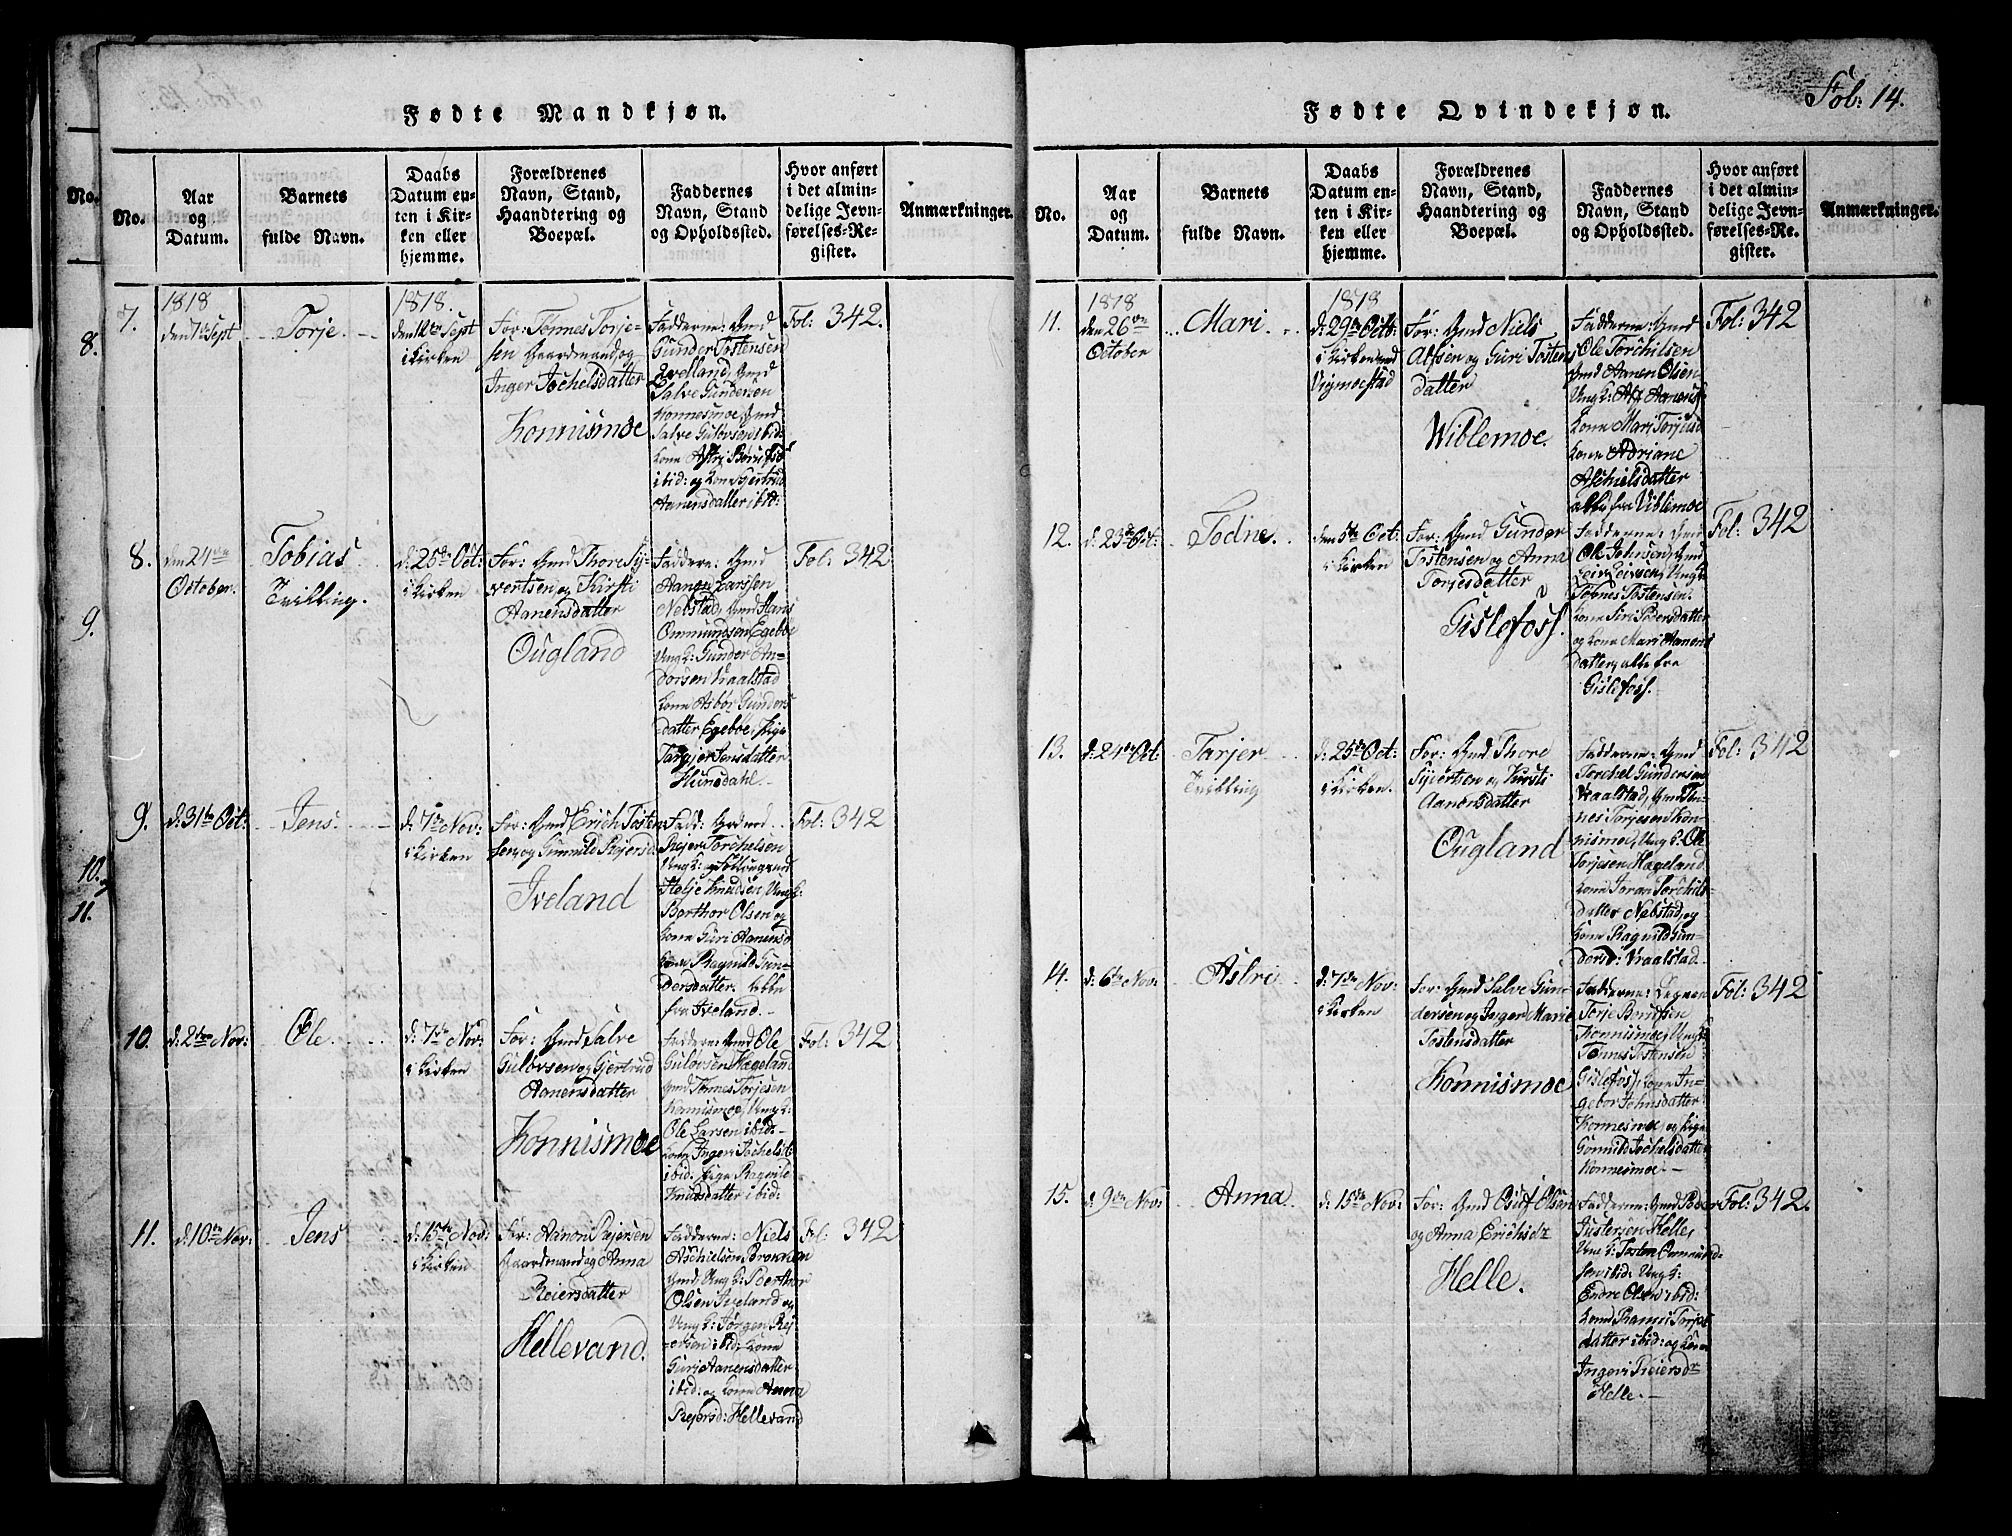 Fol: 14.
Fødte Mandkjøn.
No.
Aar
og
Datum.
Barnets
fulde Navn.
Daabs
Datum en-
ten i Kir-
ken eller
hjemme.
Forældrenes
Navn, Stand,
Haandtering og
Boepæl.
Faddernes
Navn, Stand
og Opholdssted.
Hvor anført
i det almin-
delige Jevn-
førelses-Re-
gister.
Anmærkninger.
7.
1818
den 7de Sept
Torje
1818.
den 12te Sept
i Kirken
For: Tønnes Torje-
sen Gaardmand og
Inger Jochelsdatter
Konnismoe
Fadderne: Gmd
Gunder Tostensen
Iveland, Gmd
Salve Gundersen
Konnesmoe, Gmd
Salve Guløvsen ibid:
Kone Astri
ibid: og Kone Gjertrud
Aanensdatter ibid:
Fol: 342.
8.
den 24de
October.
Tobias
Tvilling.
d: 25de Oct:
i Kirken
For: Gmd Thore Sy-
vertsen og Kirsti
Aanensdatter
Ougland
Faddere: Gmd
Aanen Larssen
Nebstad, Gmd Hans
Ommundsen Egeboe
Ungk: Gunder An-
dersen Vraalstad
Kone Asbor Gunders
datter Egeboe, Pige
Targjer Jensdatter
Hunsdahl.
Fol: 342
9.
d: 31te Oct:
Jens.
d: 7de Nov:
i Kirken
For: Gmd Erich Tosten
sen og Gunnild Rejersd:
Iveland
Fadd:
Rejer Torchelsen
Ungk:
Helje Knudsen Ungk:
Berthor Olsen og
Kone Guri Aanensd
Kone Ragnild Gun-
dersdatter. alle
fra Iveland.
Fol: 342
10.
d: 2den Nov:
Ole
d: 7de Nov:
i Kirken
For: Gmd Salve
Guløvsen og Gjertrud
Aanensdatter
Konnismoe
Fadderne: Gmd Ole
Guløvsen Hageland
Gmd Tønnes Torjesen
Konnismoe, Ungk:
Ole Larsen ibid:
Kone Inger Jochelsd
ibid: Pige Ragnild
Knudsdatter ibid:
Fol: 342
11.
d: 10de Nov:
Jens
d: 15de Nov:
i Kirken
For: Aanon Rejersen
Gaardmand og Anna
Reiersdatter
Hellevand.
Fadderne: Niels
Aschielsen
Gmd, Ungk: Berthor
Olsen Iveland og
Ungk: Jørgen Rej-
ersen ibid: Kone
Guri Aanensdatter
ibid: og Kone Anna
Rejersd: Hellevand
Fol: 342
No.
8.
9.
10.
11.
Fødte Qvindekjøn.
No.
Aar
og
Datum.
Barnets
fulde Navn.
Daabs
Datum en-
ten i Kir-
ken eller
hjemme.
Forældrenes
Navn, Stand,
Haandtering og
Boepæl.
Faddernes
Navn, Stand
og Opholdssted.
Hvor anført
i det almin-
delige Jevn-
førelses-Re-
gister.
Anmærkninger.
11.
1818
den 26de
October
Mari
1818
d: 29de Octo:
i Kirken ved
Vigmoestad
For: Gmd Niels
Alfsen og Guri Tostens
datter
Wiblemoe.
Fadderne: Gmd
Ole Torchilsen
Gmd Aanen Olsen
Ungk: Alf Aanens:
Kone Mari Torjusd
Kone Adriane
Aschielsdatter
alle fra Viblemoe
Fol: 342
12.
d: 23de Oct:
Todne.
den 5te Oct:
i Kirken
For: Gmd Gunder
Tostensen og Anna
Torjesdatter
Gislefoss.
Fadderne: Gmd
Ole Johnsen, Gmd
Leiv Leivsen, Ungk:
Tønnes Tostensen
Kone Siri Pedersdatter
og Kone Mari Aanens
datter, alle fra
Gislefoss.
Fol: 342
13.
d: 24de Oct:
Tarjer
Tvilling
d: 25de Oct:
i Kirken.
For: Gmd Thore
Syvertsen og Kirsti
Aanensdatter
Ougland
Fadderne: Gmd
Torchel Gundersen
Vraalstad, Gmd Tøn-
nes Torjesen Kon-
nismoe, Ungk: Ole
Torjesen Hageland
Kone Joran Torchils-
datter Nebstad, og
Kone Ragnild Gun-
dersd: Vraalstad
Fol: 342
14.
d: 6te Nov:
Astri
d: 7de Nov:
i Kirken
For: Gmd Salve Gun-
dersen og Inger Marie
Tostensdatter
Konnismoe
Fadderne:
Torje
Konnismoe, Ungk:
Tønnes Tostensen
Gislefoss, Kone In-
gebor Johnsdatter
Konnesmoe, og Pige
Gunnild Jochelsdatter
Konnesmoe.
Fol: 342
15.
d: 9de Nov:
Anna
d: 15de Nov:
For: Gmd Oluf Olsen
og Anna Erichsdr
Helle.
Fadderne: Gmd Peder
Tostensen Helle,
Ungk: Tosten Ommund-
sen ibid: Ungk:
Endre Olsen ibid:
Kone Ranni Torjes
datter ibid: og Kone
Ingeri Reiersdr
Helle.
Fol: 342.